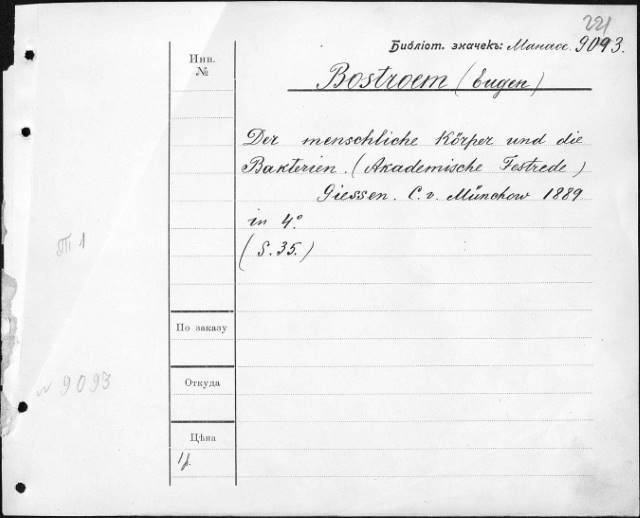 221
Библіот. значекъ: Манас. 9093.
Инв.
№
Bostroem (Eugen)
Der menschliche Körper und die
Bakterien. (Akademische Festrede)
Giessen. C. v. Münchow 1889
in 4°
(S. 35.)
По заказу
N 9093
Откуда
Цѣна
1 р.